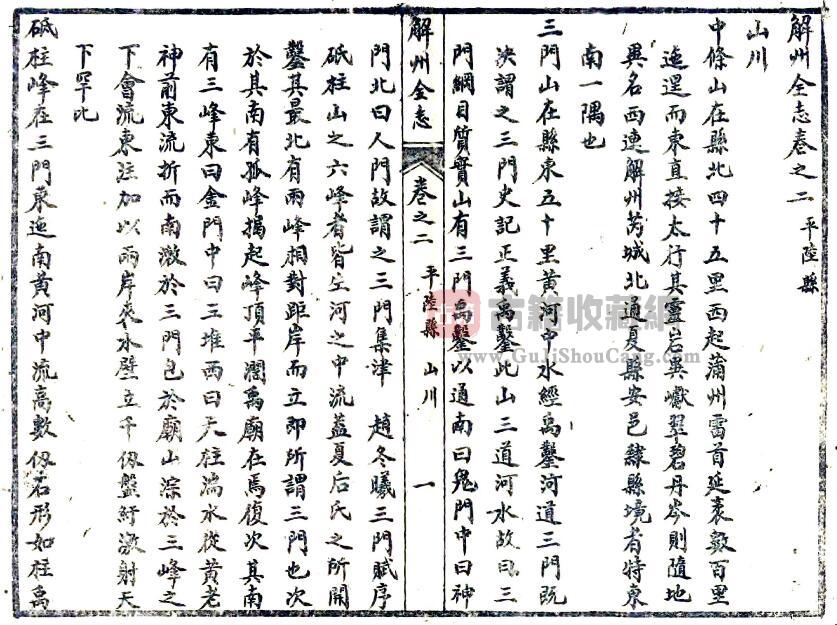 解州全志卷之二 平陸縣
山川
中條山在縣北四十五里西起蒲州雷首延袤數百里
迤邐而東直接太行其靈岩異巘翠碧丹岑則隨地
異名西連解州芮城北通夏縣安邑隸縣境者特東
南一隅也
三門山在縣東五十里黃河中水經禹鑿河道三門既
決謂之三門史記正義禹鑿此山三道河水故曰三
門綱目質實山有三門禹鑿以通南曰鬼門中曰神
解州全志 卷之二 平陸縣 山川 一
門北曰人門故謂之三門集津 趙冬曦三門賦序
砥柱山之六峰者皆生河之中流蓋夏后氏之所開
鑿其最北有兩峰相對距岸而立即所謂三門也次
於其南有孤峰揭起峰頂平濶禹廟在焉復次其南
有三峰東曰金門中曰三堆西曰天柱湍水從黃老
神前東流折而南漱於三門包於廟山淙於三峰之
下會流東注加以兩岸夾水壁立千仭盤紆激射天
下罕比
砥柱峰在三門東迤南黃河中流高數仭石形如柱禹
古籍收藏網
www.GuJiShouCang.com